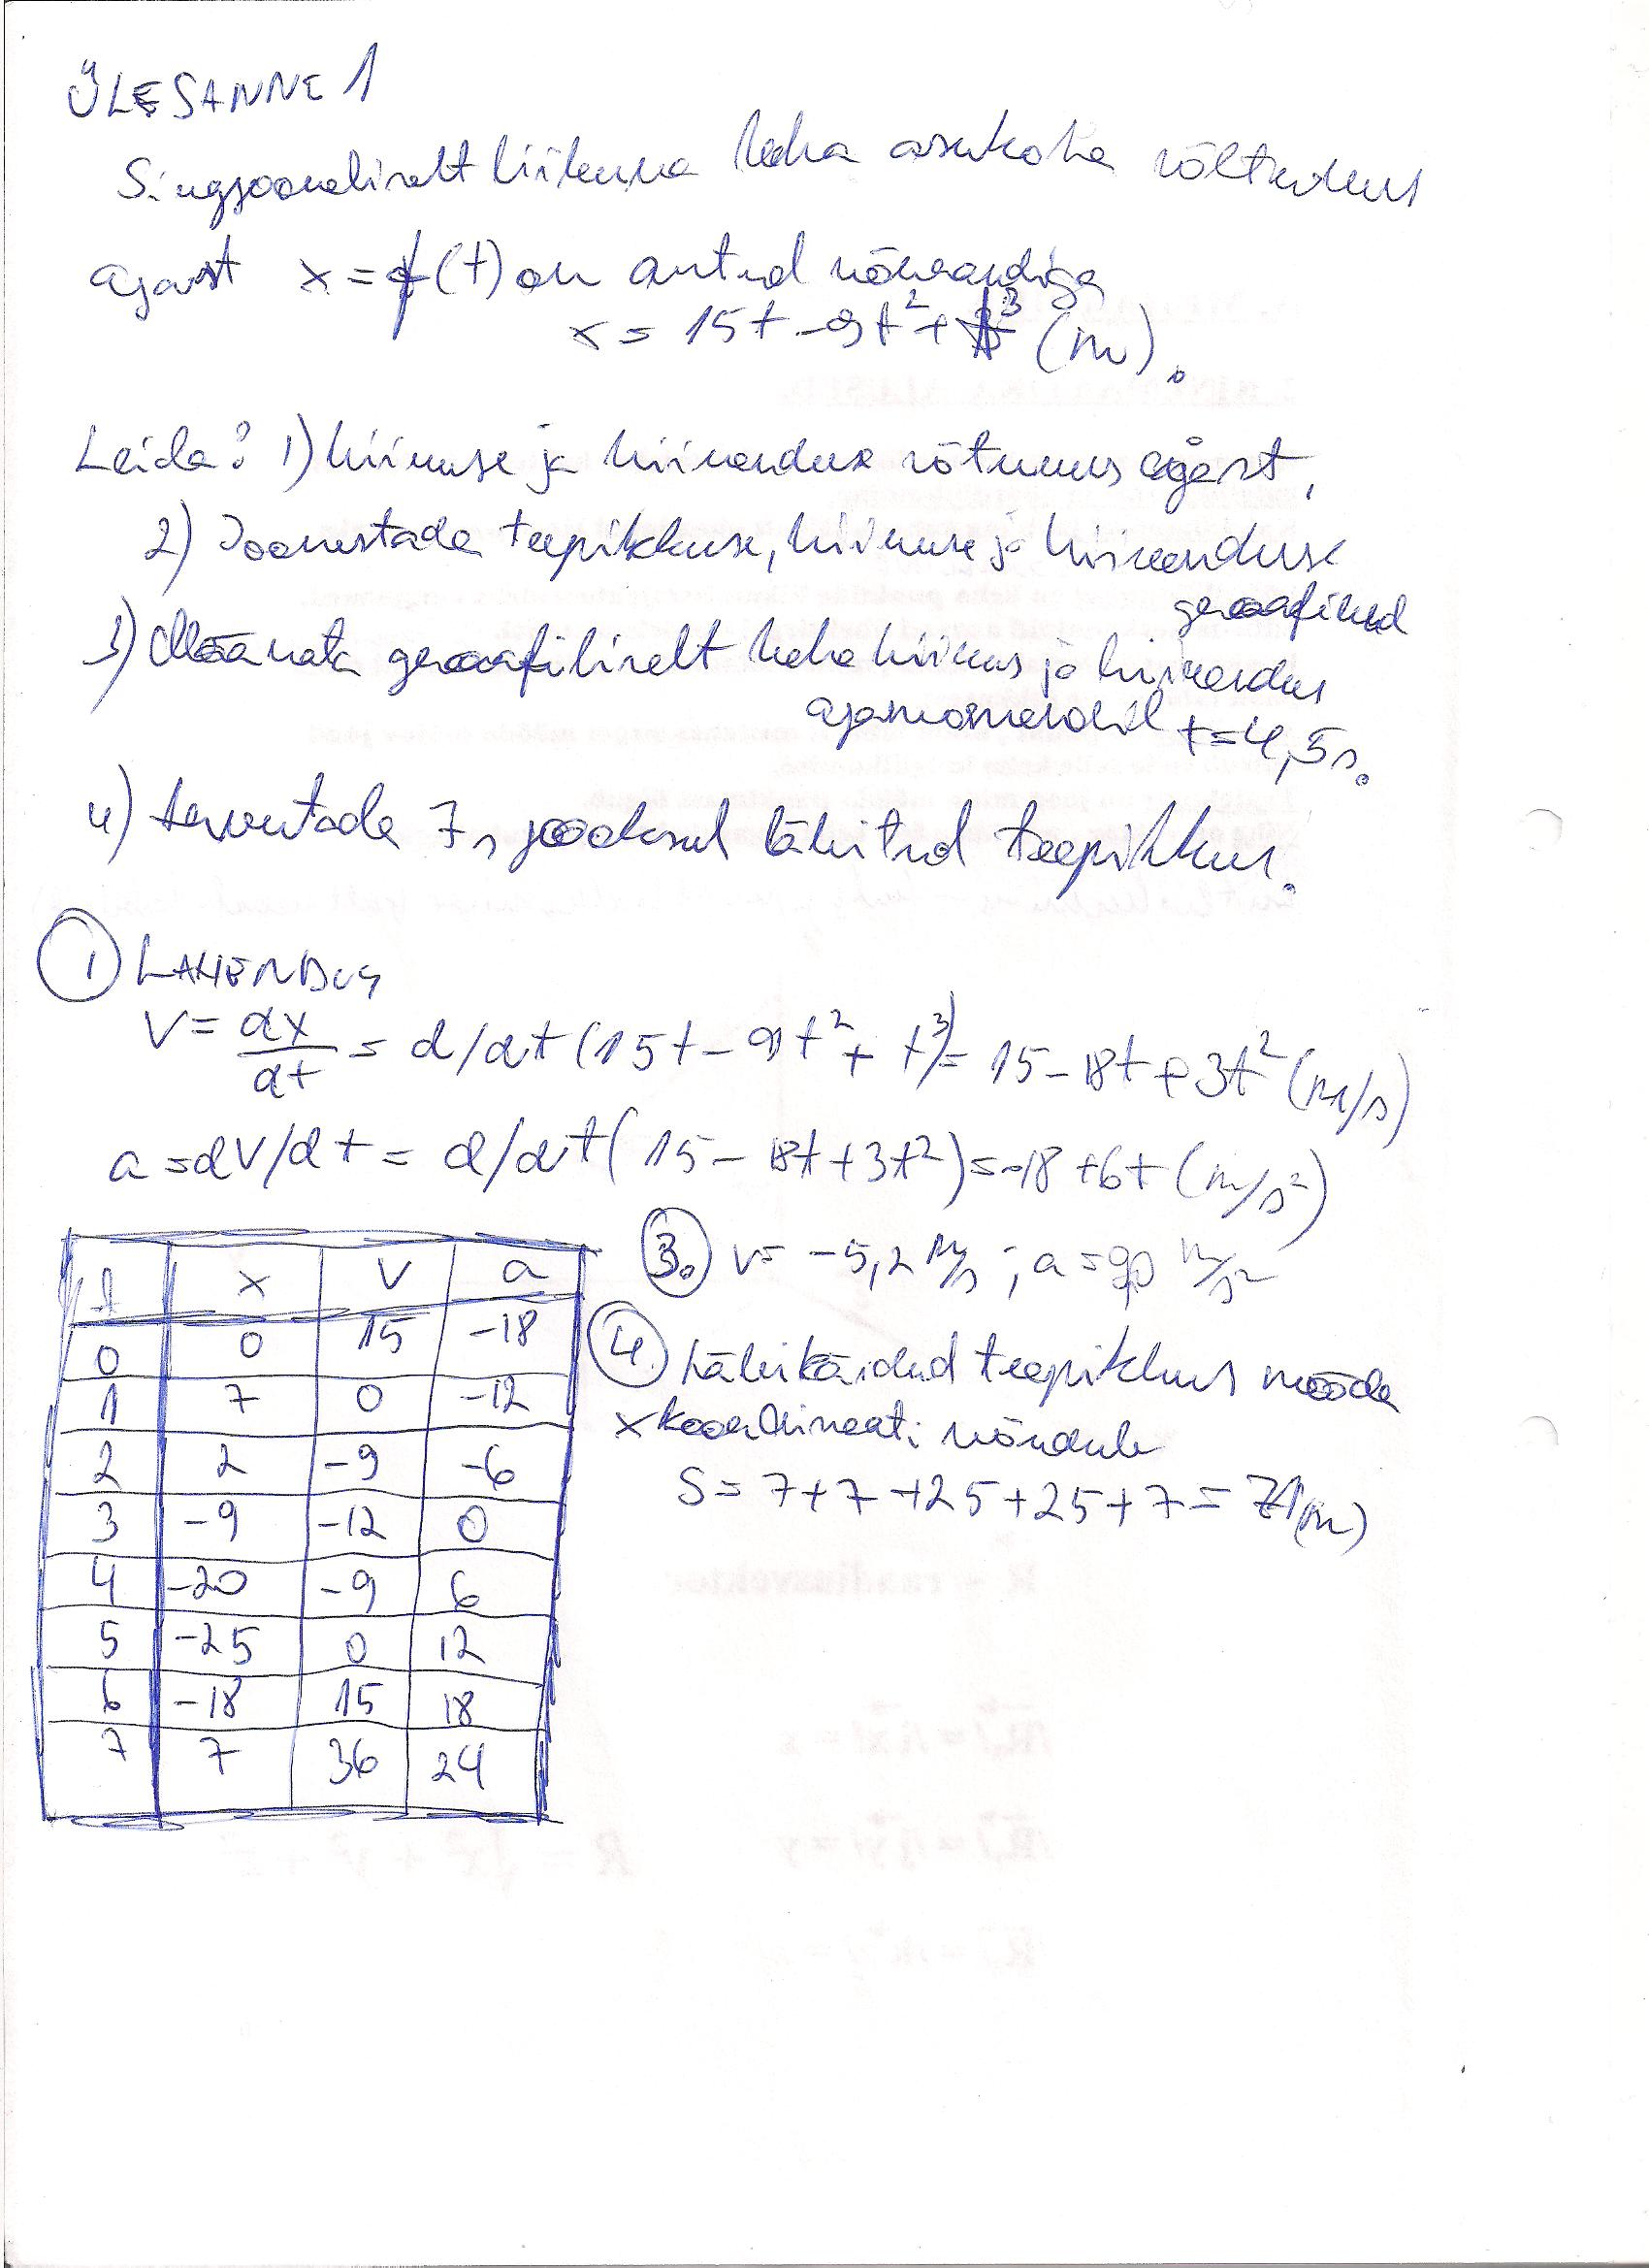 ÜLESANNE 1
Sirgjooneliselt liikuva keha asukoha sõltuvus
ajast x = f(t) on antud võrrandiga
x = 15t - 9t² + t³ (m).
Leida: 1) kiiruse ja kiirenduse sõtuvus ajast,
2) Joonestada teepikkuse, kiiruse ja kiirenduse
graafikud
3) Määrata graafiliselt keha kiirus ja kiirendus
ajamomendil t=4,5s.
4) Arvutada 7s jooksul läbitud teepikkus.
1 LAHENDUS
V = dx/dt = d/dt (15t - 9t² + t³) = 15 - 18t + 3t² (m/s)
a = dV/dt = d/dt (15 - 18t + 3t²) = -18 + 6t (m/s²)
t x V a
0 0 15 -18
1 7 0 -12
2 2 -9 -6
3 -9 -12 0
4 -20 -9 6
5 -25 0 12
6 -18 15 18
7 7 36 24
3. V = -5,2 m/s ; a = 9,0 m/s²
4. Läbikäidud teepikkus mööda
x koordinaati võrdub
S = 7 + 7 + 25 + 25 + 7 = 71 (m)